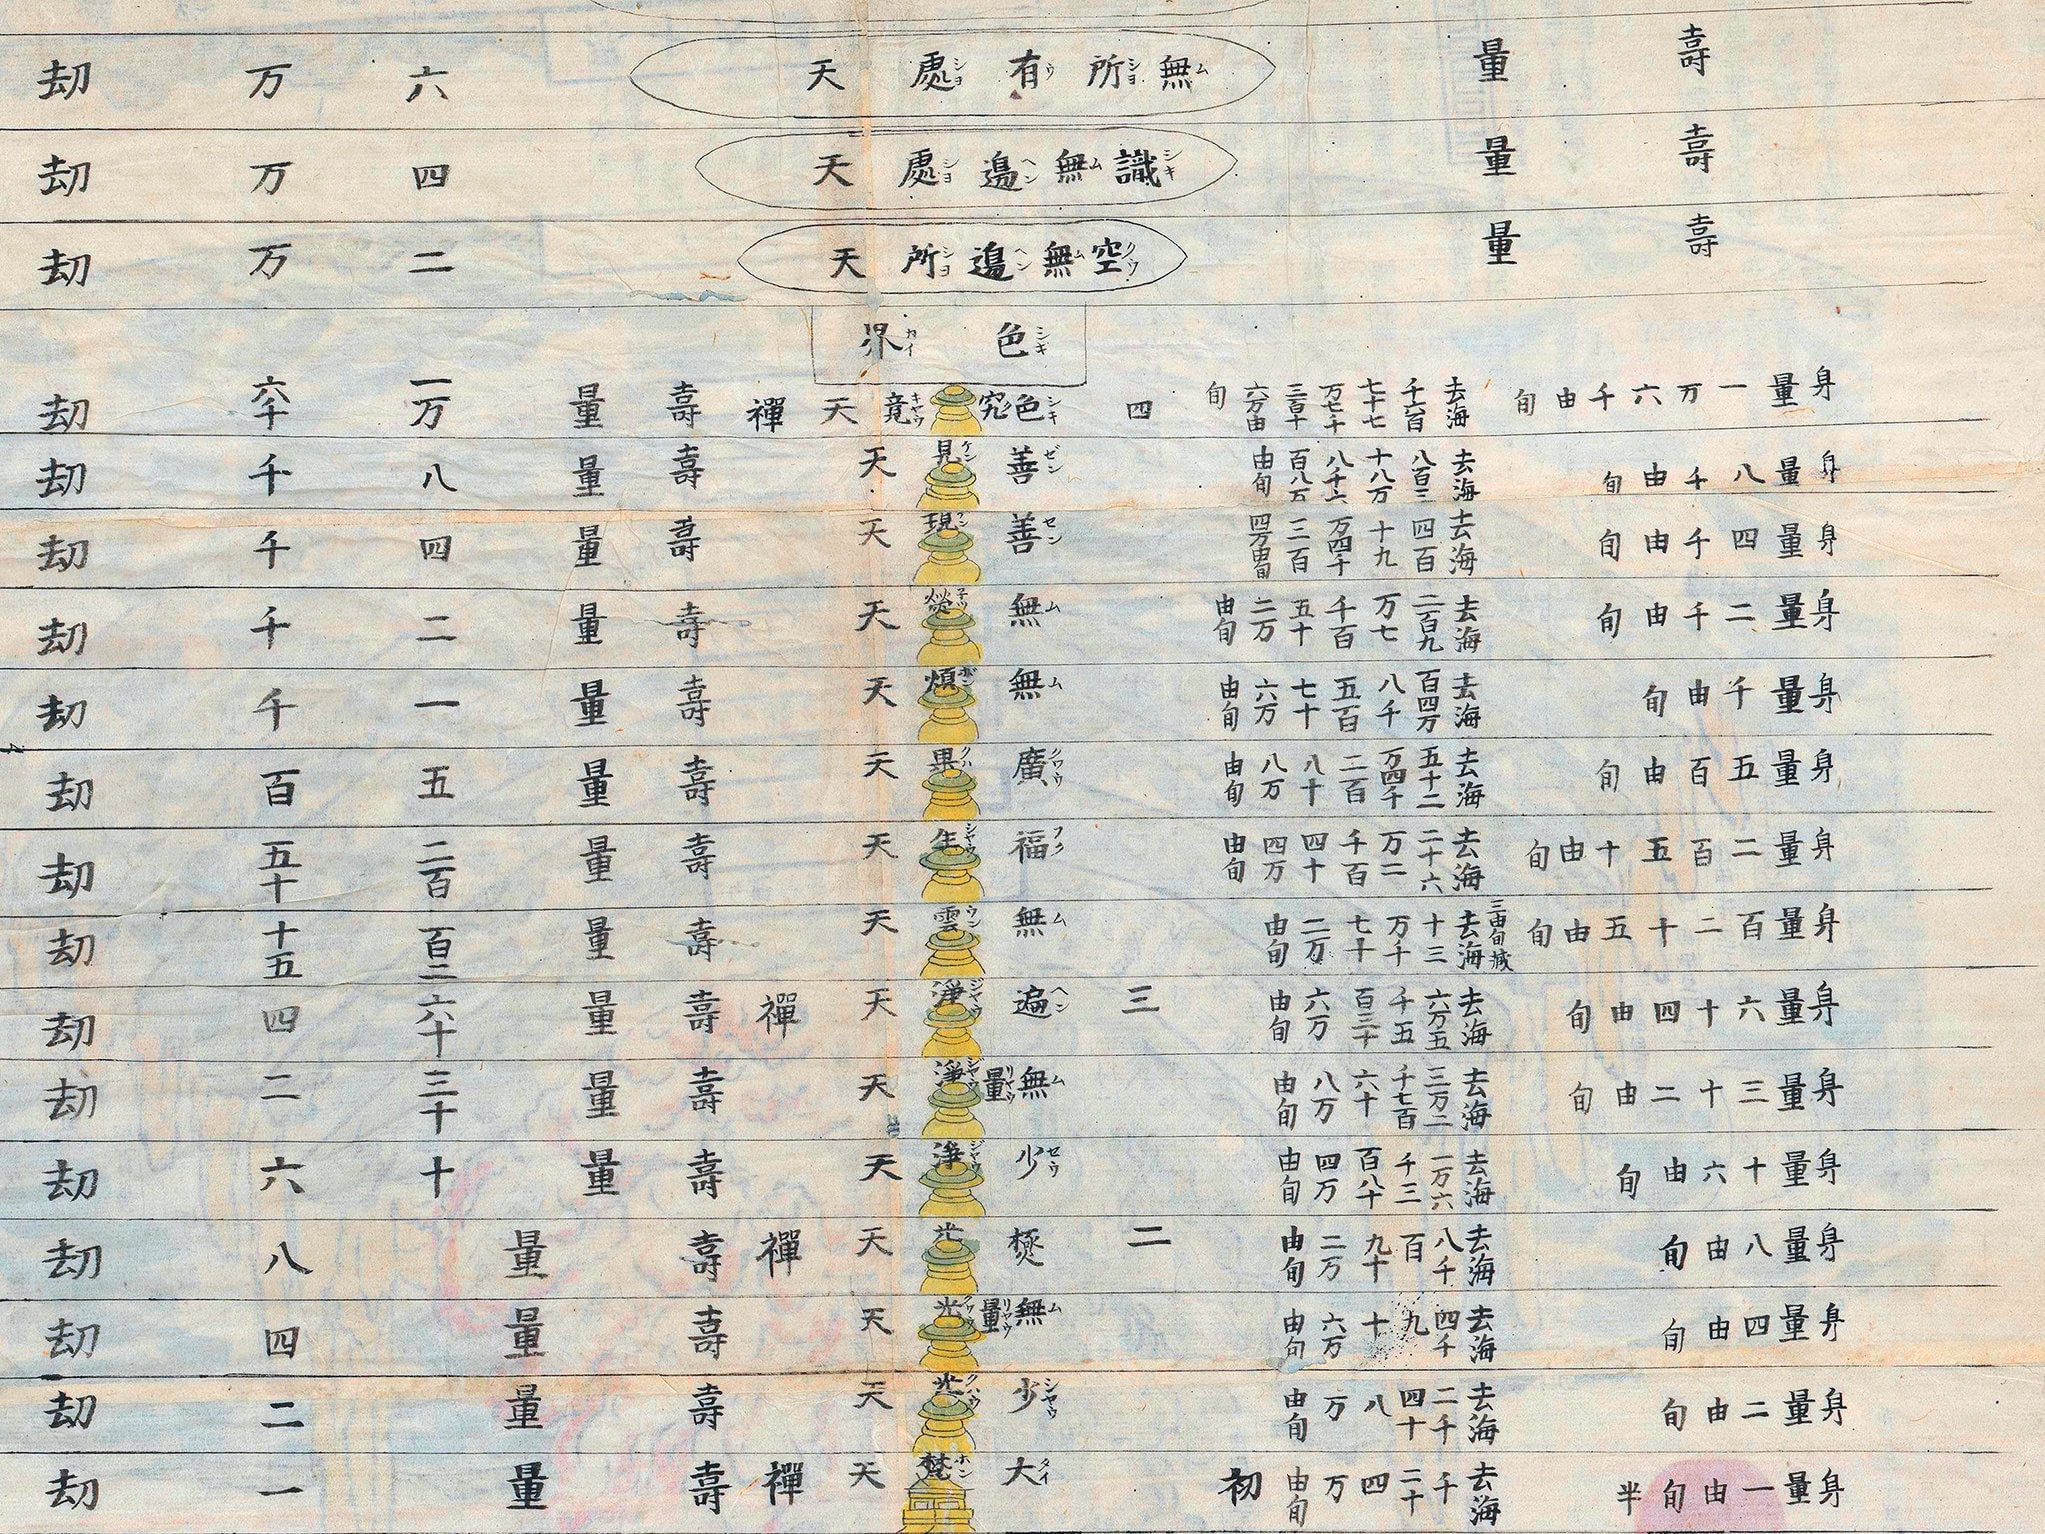 壽量 無ム所シヨ有ウ處シヨ天 六万劫
壽量 識シキ無ム邊ヘン處シヨ天 四万劫
壽量 空クウ無ム邊ヘン所シヨ天 二万劫
色シキ界カイ
身量一万六千由旬 去海千六百七十七万七千三百十六万由旬 四 色シキ究ク竟キヤウ天 禪 壽量 一万六千劫
身量八千由旬 去海八百三十八万八千六百八万由旬 善ゼン見ケン天 壽量 八千劫
身量四千由旬 去海四百十九万四千三百四万由旬 善セン現ケン天 壽量 四千劫
身量二千由旬 去海二百九万七千百五十二万由旬 無ム熱子ツ天 壽量 二千劫
身量千由旬 去海百四万八千五百七十六万由旬 無ム煩ボン天 壽量 一千劫
身量五百由旬 去海五十二万四千二百八十八万由旬 廣クワウ果クハ天 壽量 五百劫
身量二百五十由旬 去海二十六万二千百四十四万由旬 福フク生シヤウ天 壽量 二百五十劫
身量百二十五由旬 三由旬減 去海十三万千七十二万由旬 無ム雲ウン天 壽量 百二十五劫
身量六十四由旬 去海六万五千五百三十六万由旬 三 遍ヘン淨ジヤウ天 禪 壽量 六十四劫
身量三十二由旬 去海三万二千七百六十八万由旬 無ム量リヤウ淨ジヤウ天 壽量 三十二劫
身量十六由旬 去海一万六千三百八十四万由旬 少セウ淨ジヤウ天 壽量 十六劫
身量八由旬 去海八千百九十二万由旬 二 極光天 禪 壽量 八劫
身量四由旬 去海四千九十六万由旬 無ム量リヤウ光クワウ天 壽量 四劫
身量二由旬 去海二千四十八万由旬 少シヤウ光クハウ天 壽量 二劫
身量一由旬半 去海千二十四万由旬 初 大タイ梵ホン天 禪 壽量 一劫